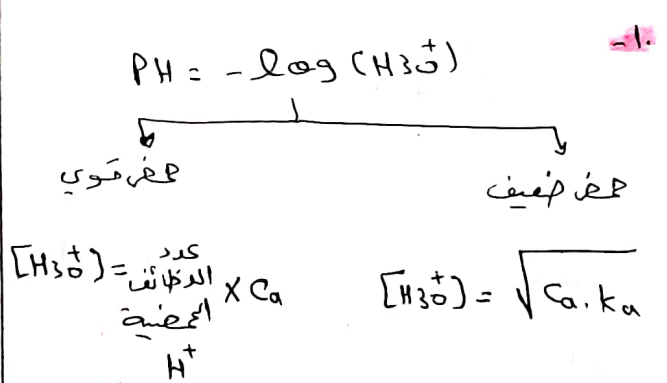 -1.
PH = -log (H3O+)
حمض قوي
حمض ضعيف
[H3O+) = عدد الوظائف الحمضية H+ x Ca
[H3O+) = √Ca.ka